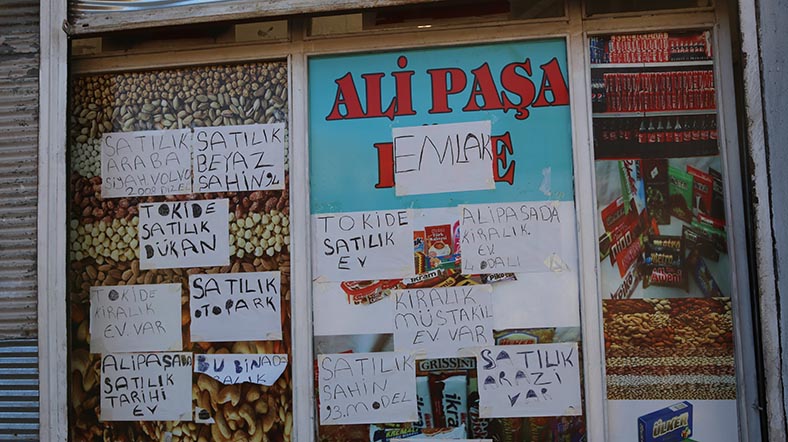 ALİ PAŞA
EMLAK
SATILIK
ARABA
SİYAH. VOLVO
2008 MODEL
SATILIK
BEYAZ
SAHİN
TOKİDE
SATILIK
DÜKAN
TOKİDE
KİRALIK
EV. VAR
SATILIK
OTOPARK
ALİPAŞADA
SATILIK
TARİHİ
EV
BU BİNADA
KİRALIK
TOKİDE
SATILIK
EV
ALİPAŞADA
KİRALIK
EV
4 ODALI
KİRALIK
MÜSTAKİL
EV. VAR
SATILIK
SAHİN
93. MODEL
SATILIK
ARAZİ
VAR
GRISSINI
ikram
ÜLKER
metro
Albeni